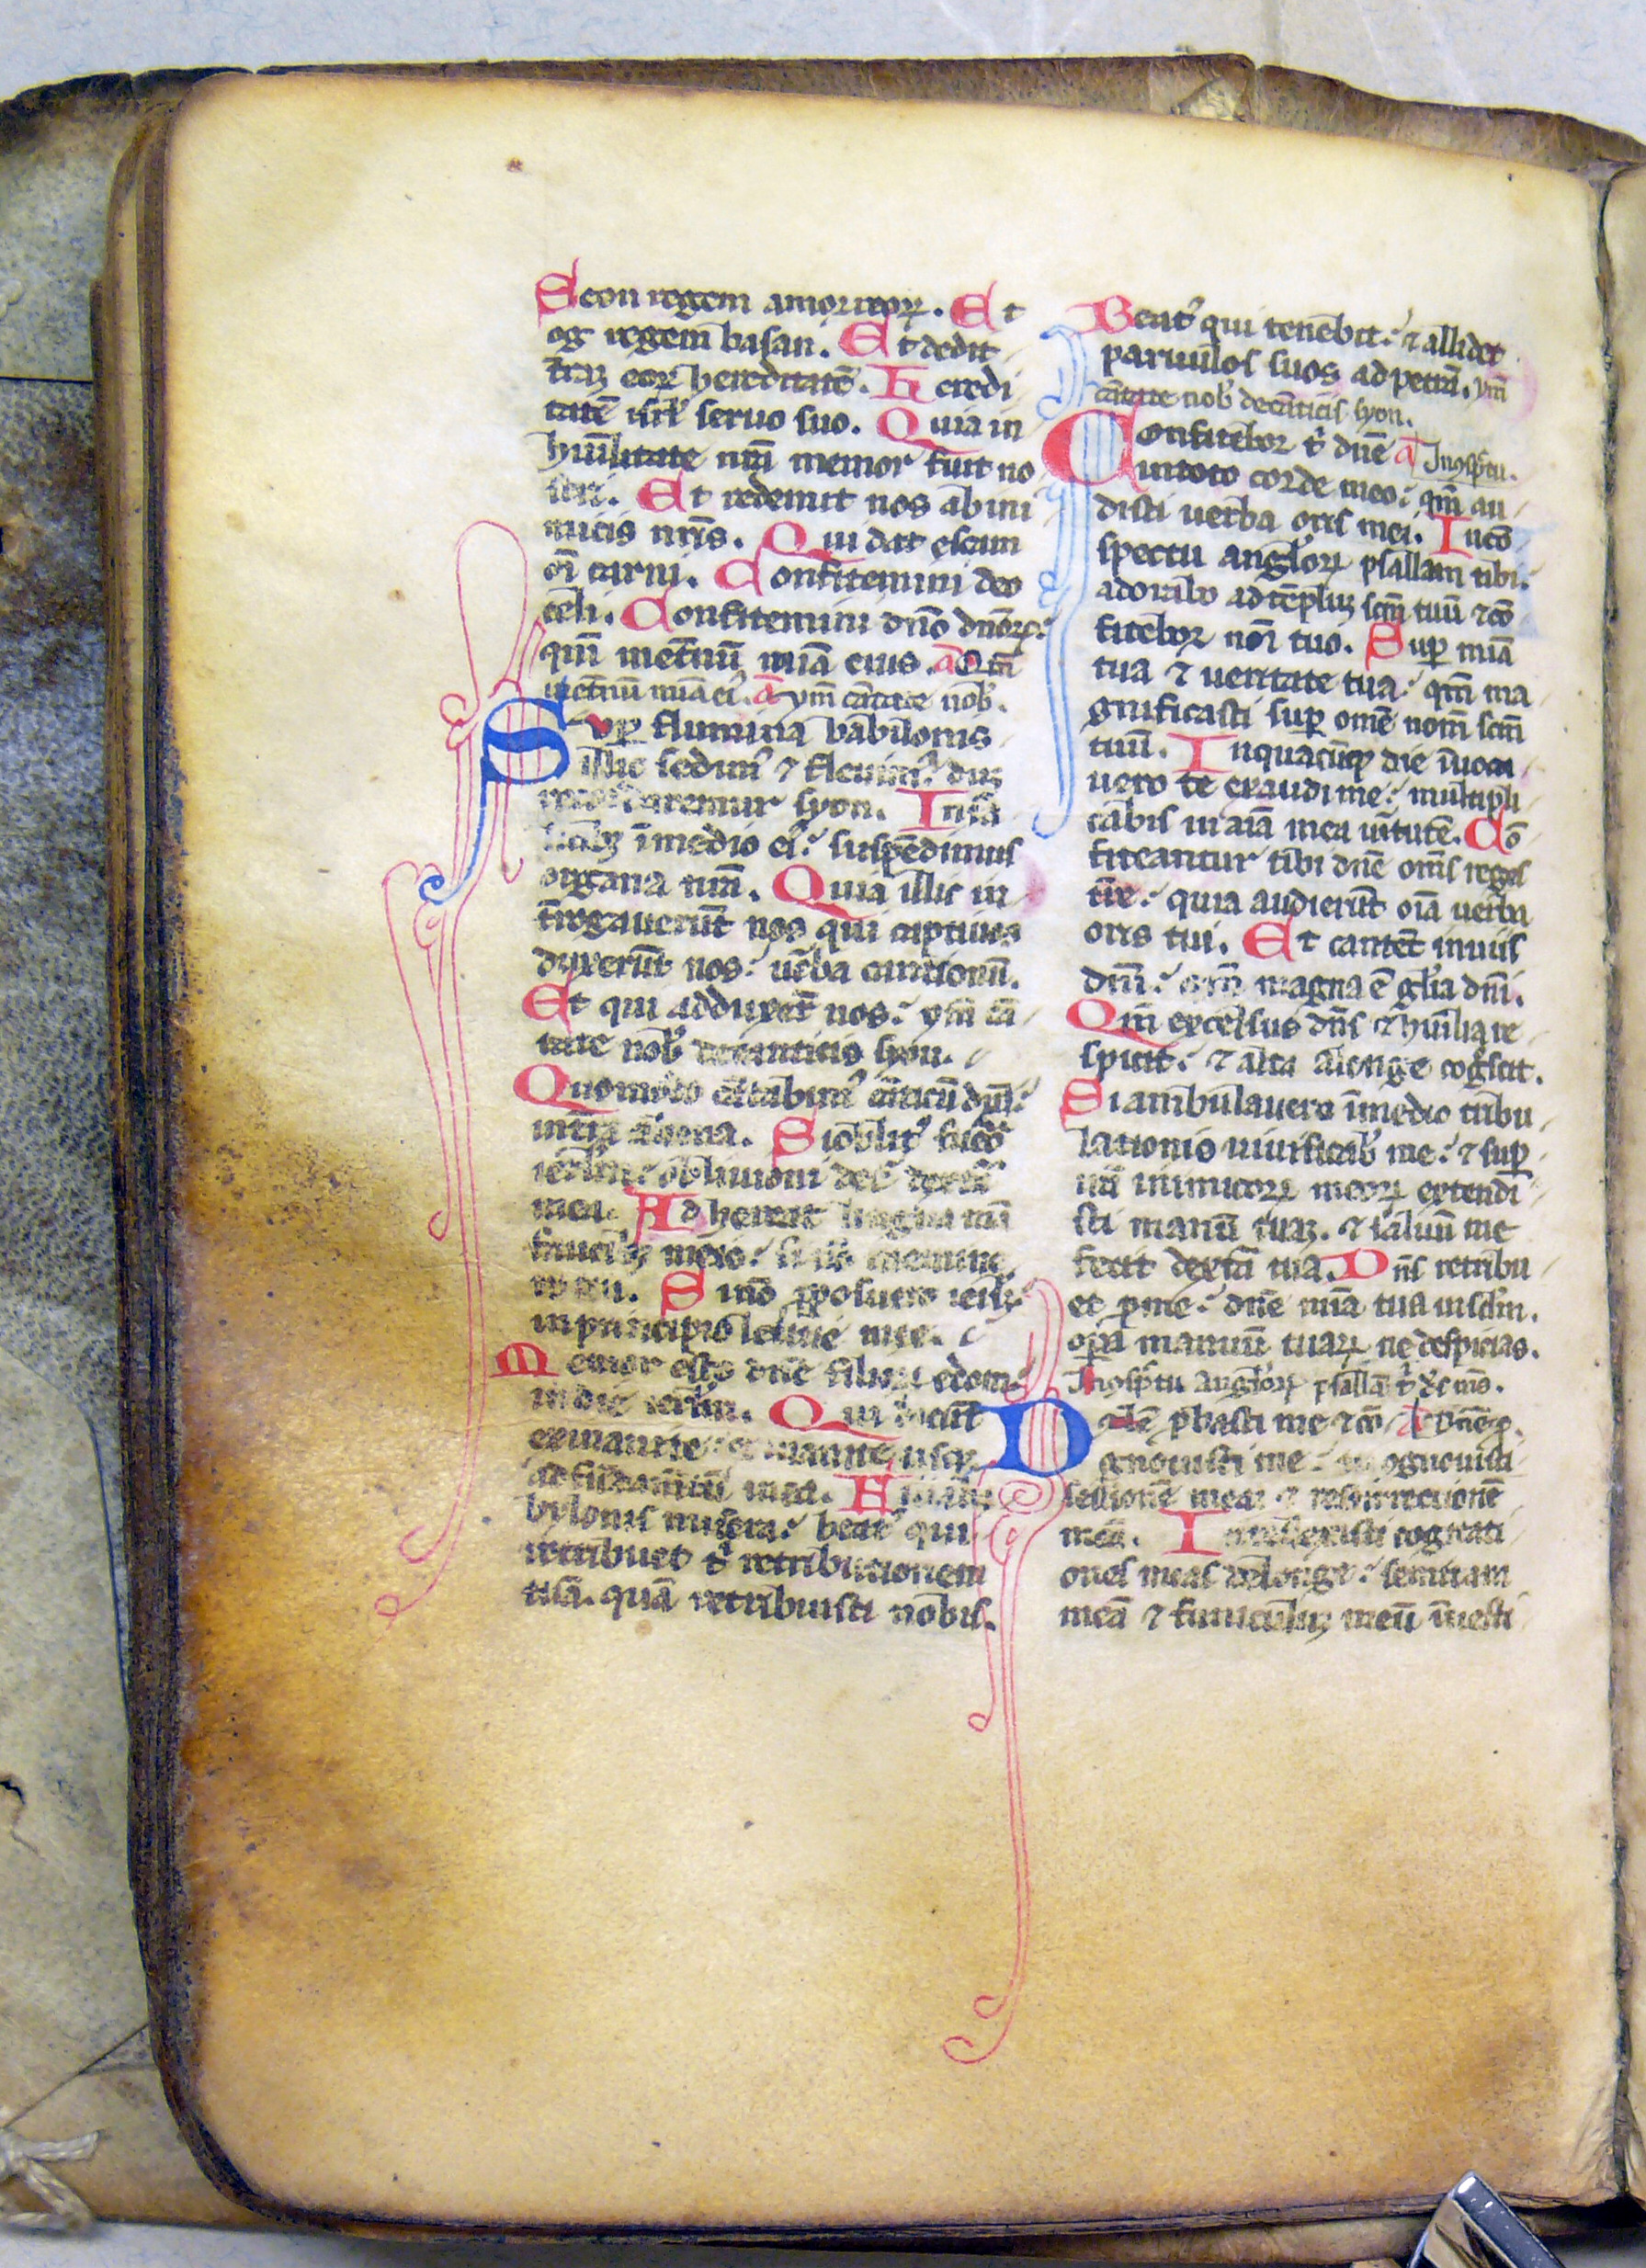 Seon regem amorreoꝝ. Et
og regem basan. Et dedit
t̄rā eoꝝ hereditatē. Heredi
tatē isrl̄ seruo suo. Quia in
hūilitate nr̄a memor fuit no
stri. Et redemit nos ab ini
micis nr̄is. Qui dat escam
oī carni. Confitemini deo
celi. Confitemini dn̄o dn̄oꝝ:
qm̄ inet̄nū mīa eius. a Qm̄
inet̄nū mīa ei᷒. a ym̄ cātate nob̄.
Sup̄ flumina babilonis
illic sedim᷒ ⁊ fleuim᷒: dū
recordaremur syon. In sa
licibꝫ ī medio ei᷒: suspēdimus
organa nr̄a. Quia illic in
t̄rogauerūt nos qui captiuos
duxerūt nos: uerba cantionū.
Et qui adduxer̄t nos: ym̄ cā
tate nob̄ de canticis syon.
Quomodo cātabim᷒ cāticū dn̄i:
in t̄ra aliena. Si oblit᷒ fuero
ierl̄m: obliuioni det᷒ dext̄a
mea. Adhereat lingua mea
faucibꝫ meis: si nō memine
ro tui. Si nō ꝓposuero ierl̄m:
in principio letitie mee.
Memor esto dn̄e filioꝝ edom:
in die ierl̄m. Qui dicūt
exinanite: exinanite usqꝫ
ad fūdamētū in ea. Filia ba
bylonis misera: beat᷒ qui
retribuet t̄ retributionem
tuā. quā retribuisti nobis.
Beat᷒ qui tenebit: ⁊ allidet
paruulos suos ad petrā. ym̄
cātate nob̄ de cāticis syon.
Confitebor t̄ dn̄e a In ꝯsp̄ctu.
in toto corde meo: qm̄ au
disti uerba oris mei. In cō
spectu angl̄oꝝ psallam tibi:
adorabo ad tēplū sc̄m tuū ⁊ cō
fitebor noī tuo. Sup̄ mīa
tua ⁊ ueritate tua: qm̄ ma
gnificasti sup̄ omē nom̄ sc̄m
tuū. In quacūqꝫ die īuoca
uero te exaudi me: multipli
cabis in aīa mea uirtutē. Cō
fiteantur tibi dn̄e om̄s reges
t̄re: quia audierūt oīa uerba
oris tui. Et cantēt in uiis
dn̄i: qm̄ magna ē gl̄ia dn̄i.
Qm̄ excelsus dn̄s ⁊ hūilia re
spicit: ⁊ alta a longe cogscit.
Si ambulauero ī medio tribu
lationis uiuificab᷒ me: ⁊ sup̄
irā inimicoꝝ meoꝝ extendi
sti manū tuā. ⁊ saluū me
fecit dext̄a tua. Dn̄s retribu
et ꝓ me: dn̄e mīa tua in sc̄lm.
oꝑa manuū tuaꝝ ne despicias.
In ꝯsp̄tu angl̄oꝝ psallā t̄ de ms̄.
Dn̄e ꝓbasti me ⁊ cō a Dn̄e ꝓ.
gnouisti me: tu cognouisti
sessionē meā ⁊ resurrectionē
meā. Intellexisti cogitati
ones meas de longe: semitam
meā ⁊ funiculū meū īuesti